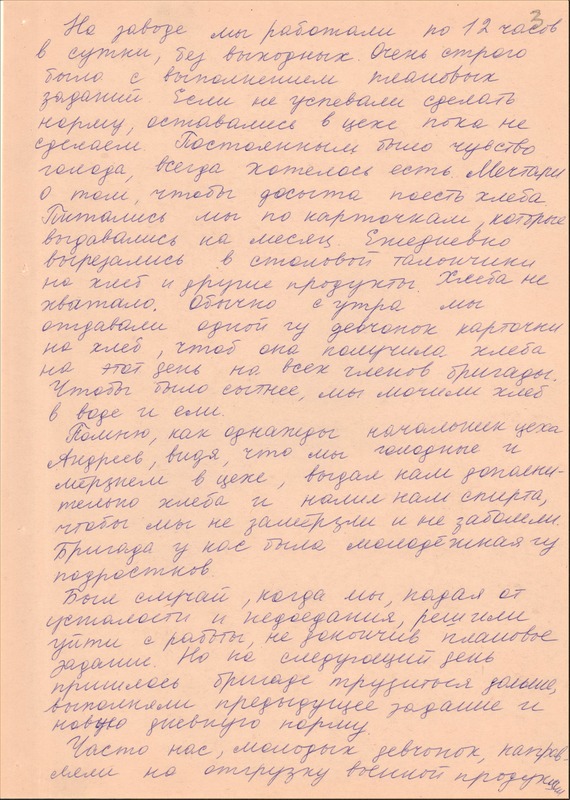 3
На заводе мы работали по 12 часов
в сутки, без выходных. Очень строго
было с выполнением плановых
заданий. Если не успевали сделать
норму, оставались в цехе пока не
сделаем. Постоянным было чувство
голода, всегда хотелось есть. Мечтали
о том, чтобы досыта поесть хлеба.
Питались мы по карточкам, которые
выдавались на месяц. Ежедневно
вырезались в столовой талончики
на хлеб и другие продукты. Хлеба не
хватало. Обычно с утра мы
отдавали одной из девчонок карточки
на хлеб, чтоб она получила хлеба
на этот день на всех членов бригады.
Чтобы было сытнее, мы мочили хлеб
в воде и ели.
Помню, как однажды начальник цеха
Андреев, видя, что мы голодные и
мёрзнем в цехе, выдал нам дополни-
тельно хлеба и налил нам спирта,
чтобы мы не замёрзли и не заболели.
Бригада у нас была молодёжная из
подростков.
Был случай, когда мы, падая от
усталости и недоедания, решили
уйти с работы, не закончив плановое
задание. Но на следующий день
пришлось бригаде трудиться дольше,
выполняли предыдущее задание и
новую дневную норму.
Часто нас, молодых девчонок, направ-
ляли на отгрузку военной продукции